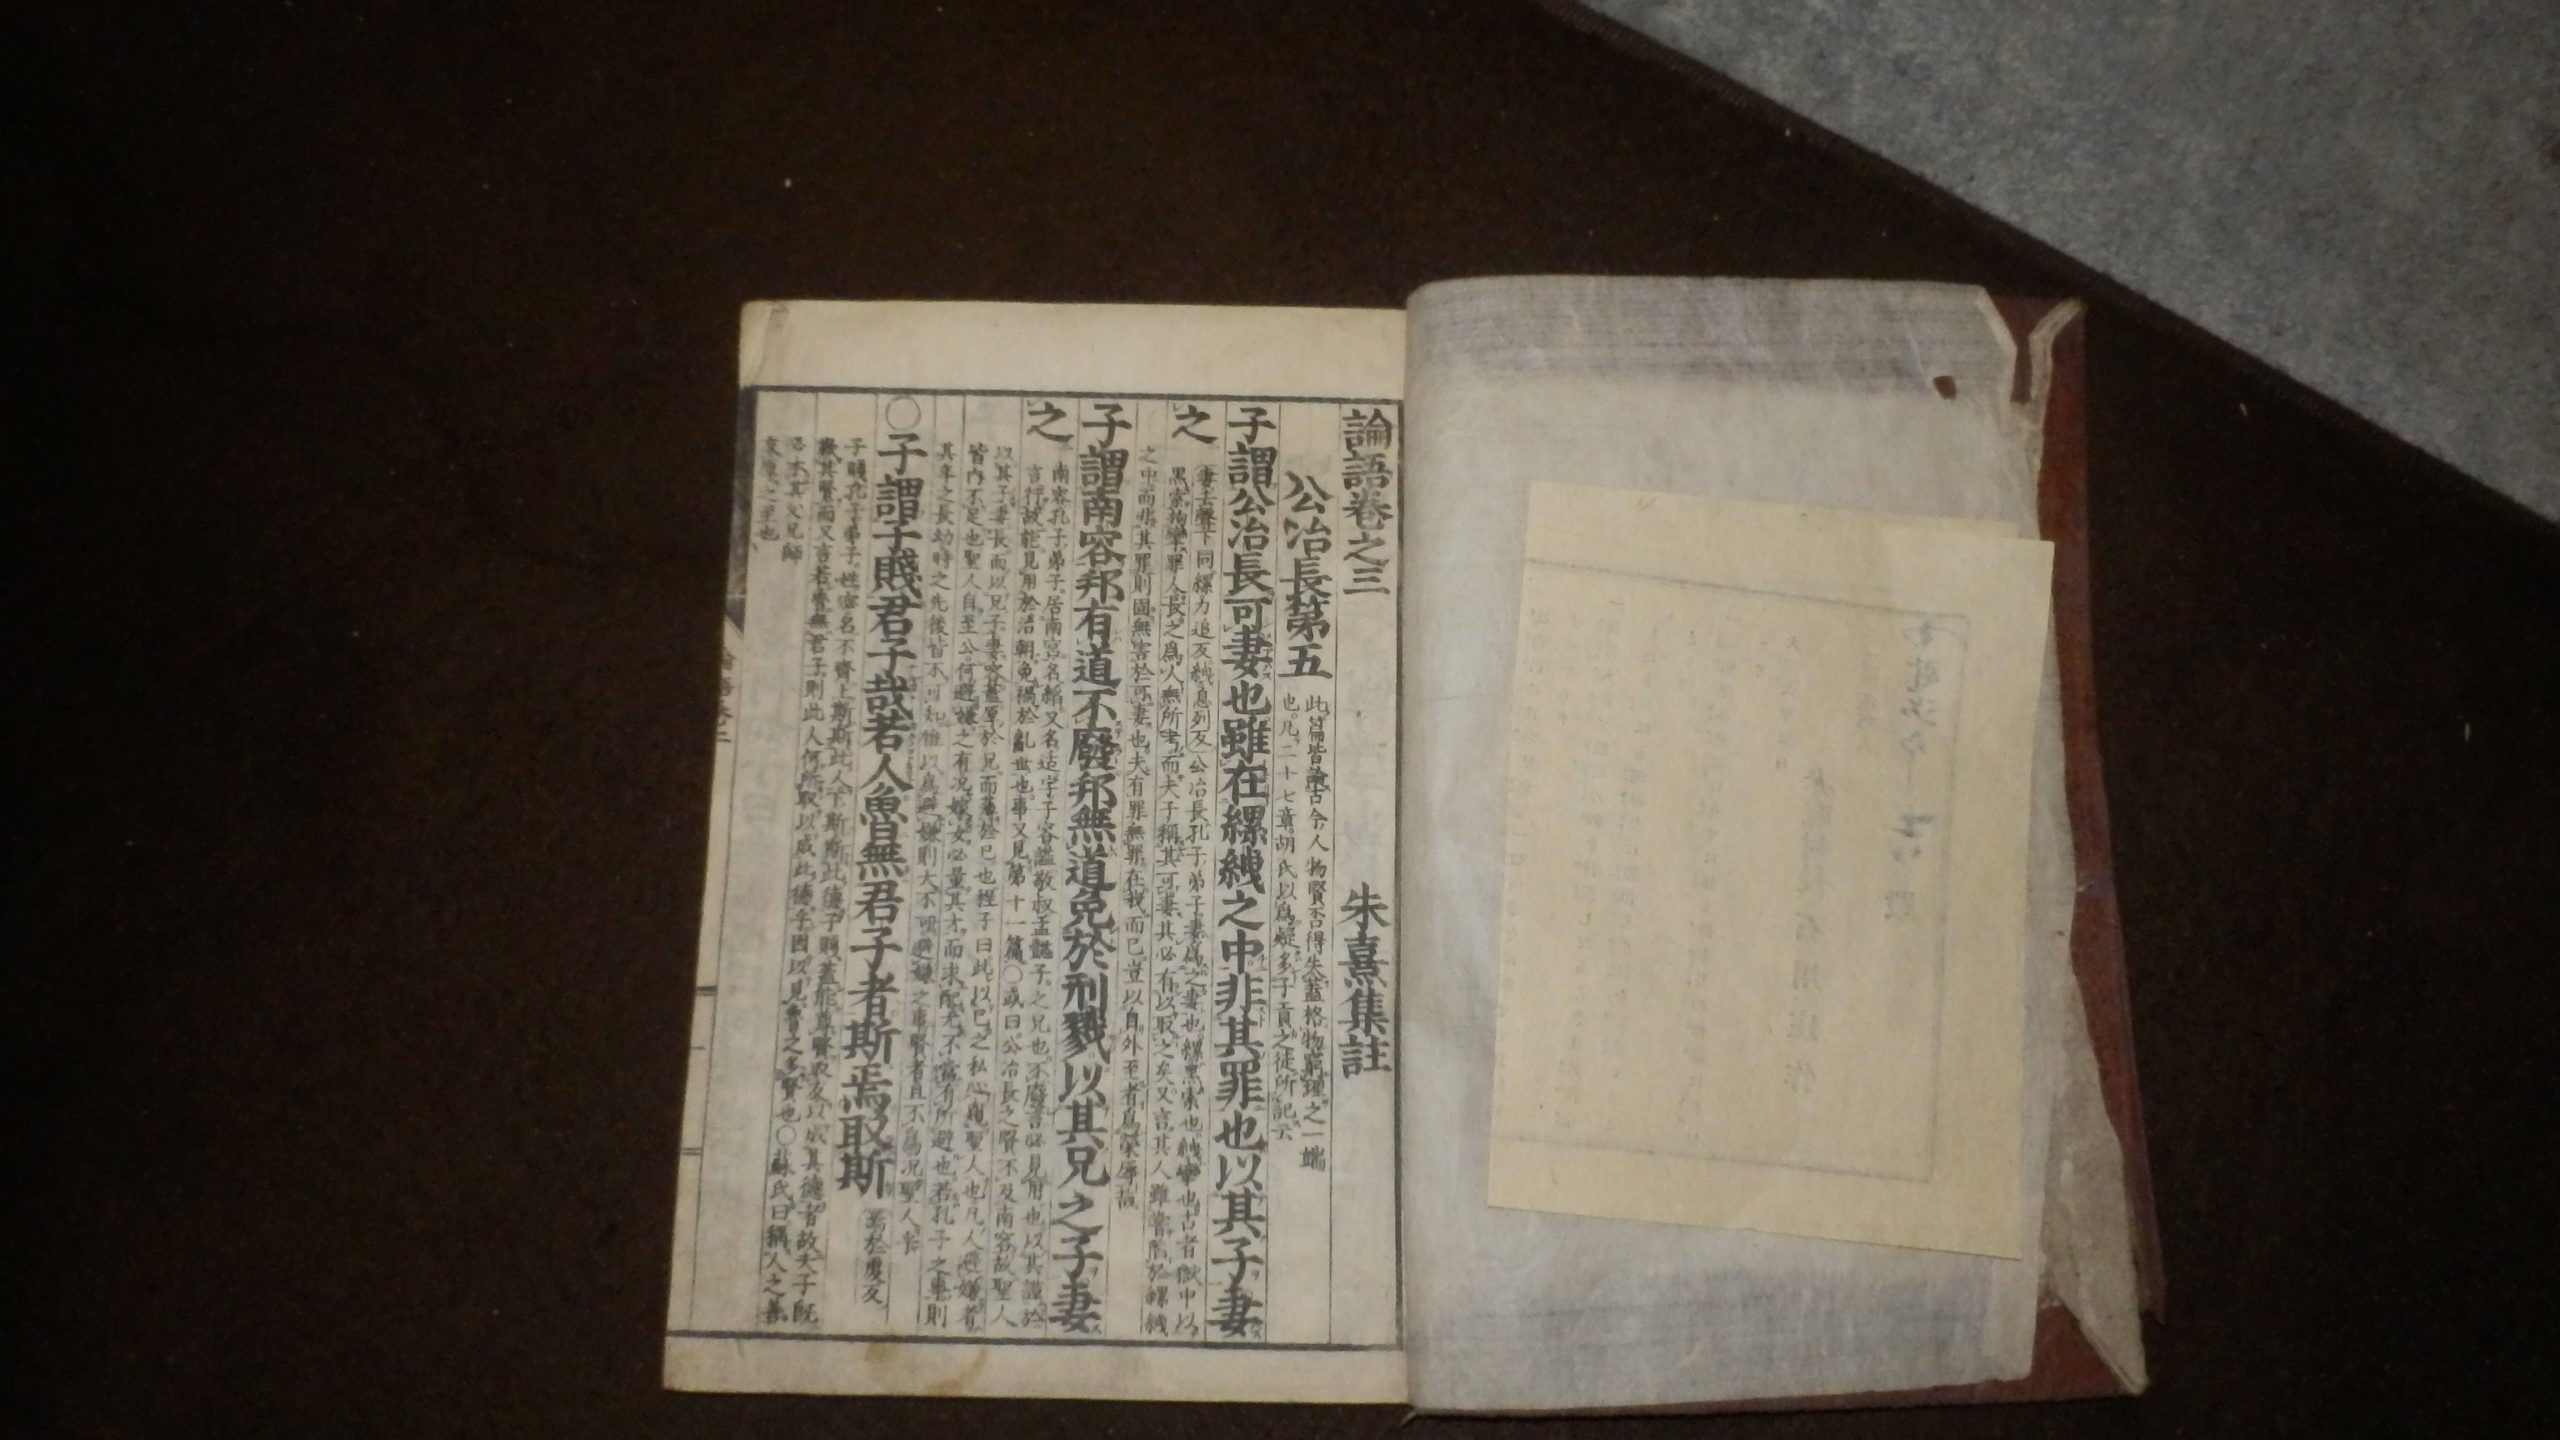 論語卷之三　朱熹集註
公冶長第五
此篇皆論古今人物賢否得失蓋格物窮理之一端
也凡二十七章胡氏以爲疑多子貢之徒所記云
子謂公冶長可妻也雖在縲絏之中非其罪也以其子妻
之
妻去聲下同縲力追反絏息列反公冶長孔子弟子妻爲之妻也縲黑索也絏攣也古者獄中以
黑索拘攣罪人長之爲人無所考而夫子稱其可妻其必有以取之矣又言其人雖嘗陷於縲絏
之中而非其罪則固無害於可妻也夫有罪無罪在我而已豈以自外至者爲榮辱哉
子謂南容邦有道不廢邦無道免於刑戮以其兄之子妻
之
南容孔子弟子居南宮名縚又名适字子容謚敬叔孟懿子之兄也不廢言必見用也以其謹於
言行故能見用於治朝免禍於亂世也事又見第十一篇○或曰公冶長之賢不及南容故聖人
以其子妻長而以兄子妻容蓋厚於兄而薄於己也程子曰此以己之私心窺聖人也凡人避嫌者
皆內不足也聖人自至公何避嫌之有況嫁女必量其才而求配尤不當有所避也若孔子之事則
其年之長幼時之先後皆不可知惟以爲避嫌則大不可避嫌之事賢者且不爲況聖人乎
○子謂子賤君子哉若人魯無君子者斯焉取斯
焉於虔反
子賤孔子弟子姓宓名不齊上斯斯此人下斯斯此德子賤蓋能尊賢取友以成其德者故夫子既
歎其賢而又言若魯無君子則此人何所取以成此德乎因以見魯之多賢也○蘇氏曰稱人之善
必本其父兄師
友厚之至也